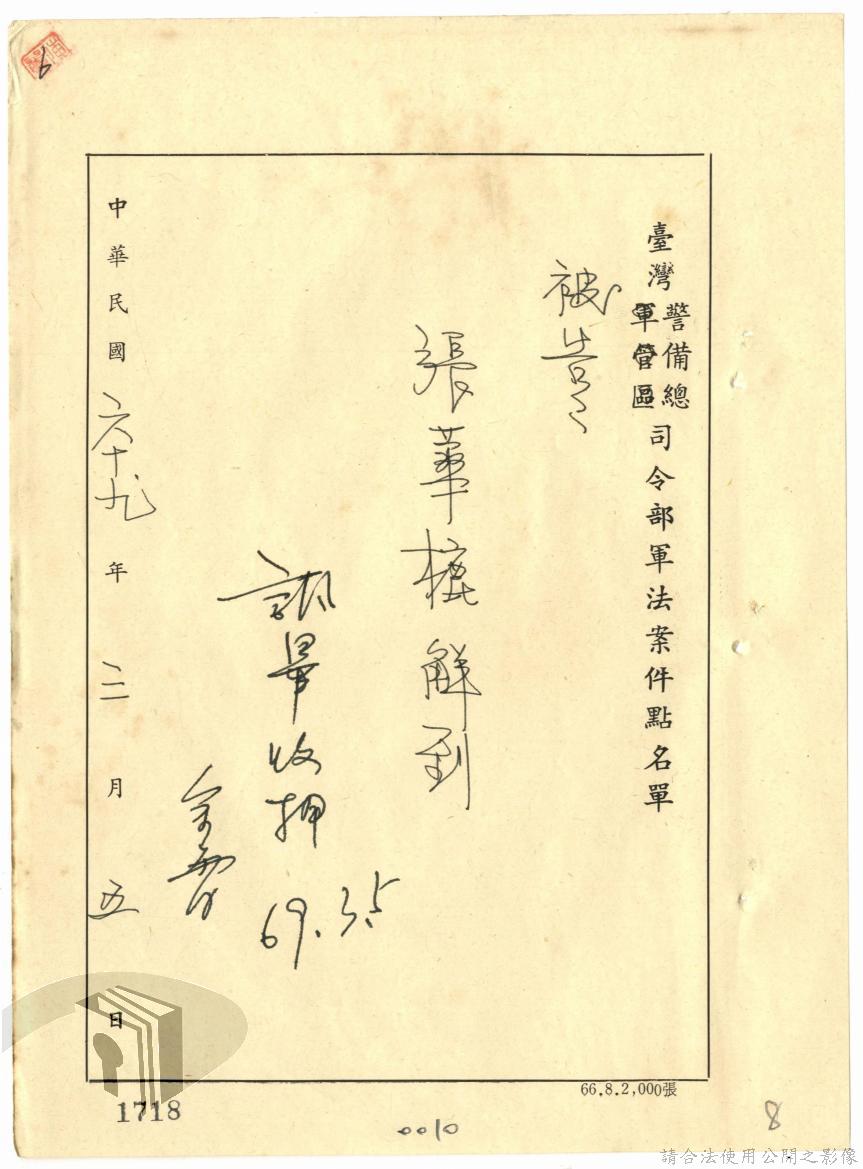 臺灣警備總軍管區司令部軍法案件點名單
被告
張華 解到
訊畢收押
69.3.5
中華民國六十九年三月五日
66.8.2,000張
1718
0010
8
6
請合法使用公開之影像